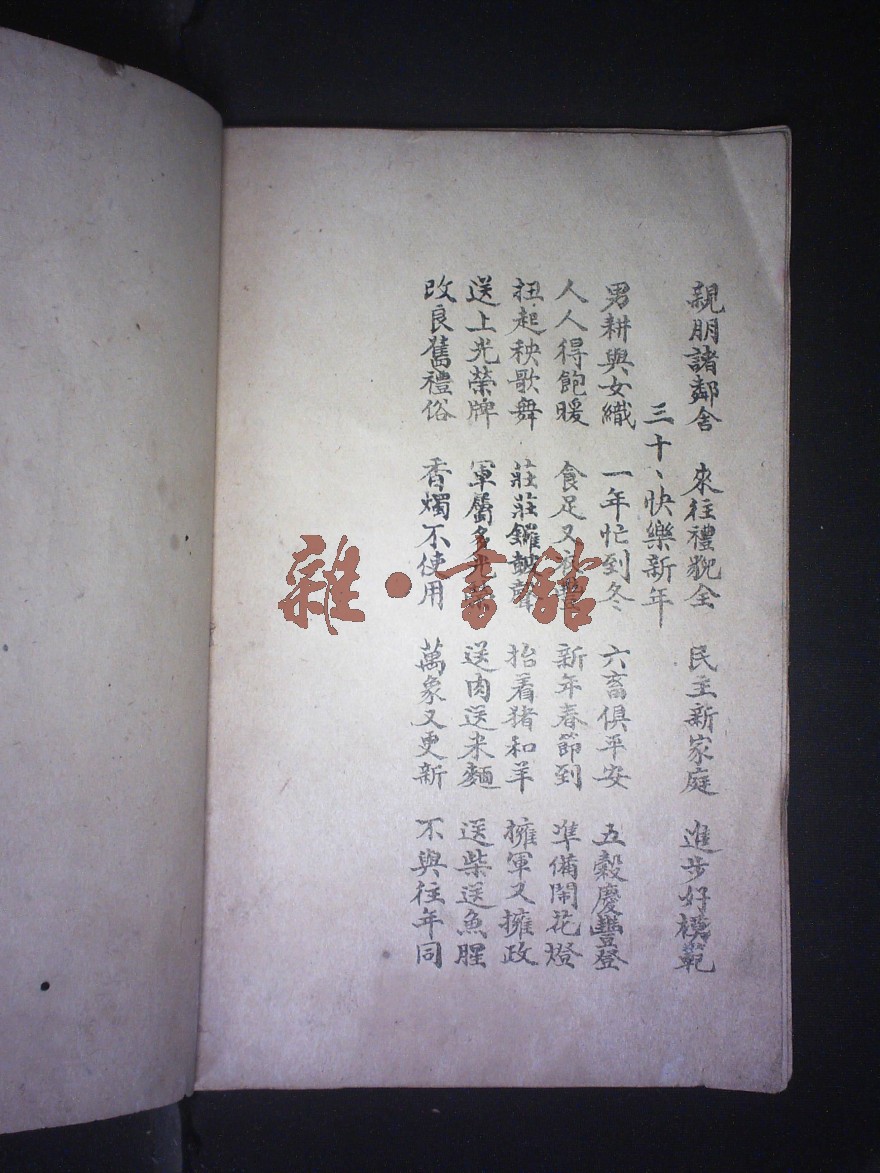 親朋諸鄰舍 來往禮貌全 民主新家庭 進步好模範
三十、快樂新年
男耕與女織 一年忙到冬 六畜俱平安 五穀慶豐登
人人得飽暖 食足又衣豐 新年春節到 準備鬧花燈
扭起秧歌舞 莊莊鑼鼓聲 抬着猪和羊 擁軍又擁政
送上光榮牌 軍屬多光榮 送肉送米麵 送柴送魚腥
改良舊禮俗 香燭不使用 萬象又更新 不與往年同
雜·書館